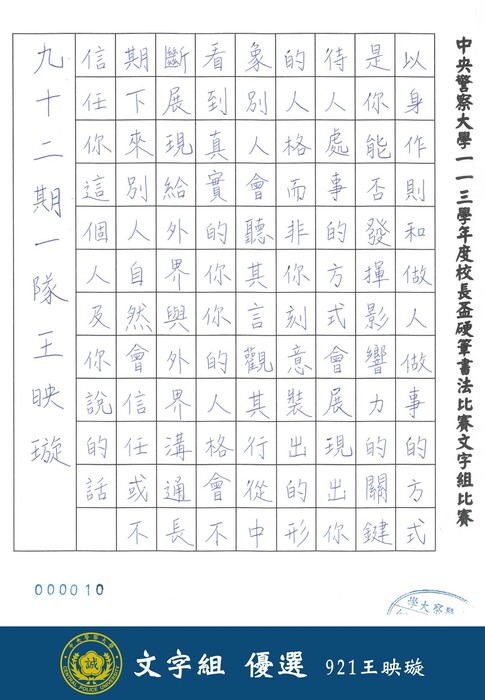 中央警察大學一一三學年度校長盃硬筆書法比賽文字組比賽
以身作則和做人做事的方式
是你能否發揮影響力的關鍵
待人處事的方式會展現出你
的人格而非你刻意裝出的形
象別人會聽其言觀其行從中
看到真實的你你的人格會不
斷展現給外界與外界溝通長
期下來別人自然會信任或不
信任你這個人及你說的話
九十二期一隊王映璇
000010
學大察
誠
CENTRAL POLICE UNIVERSITY
文字組 優選 921王映璇